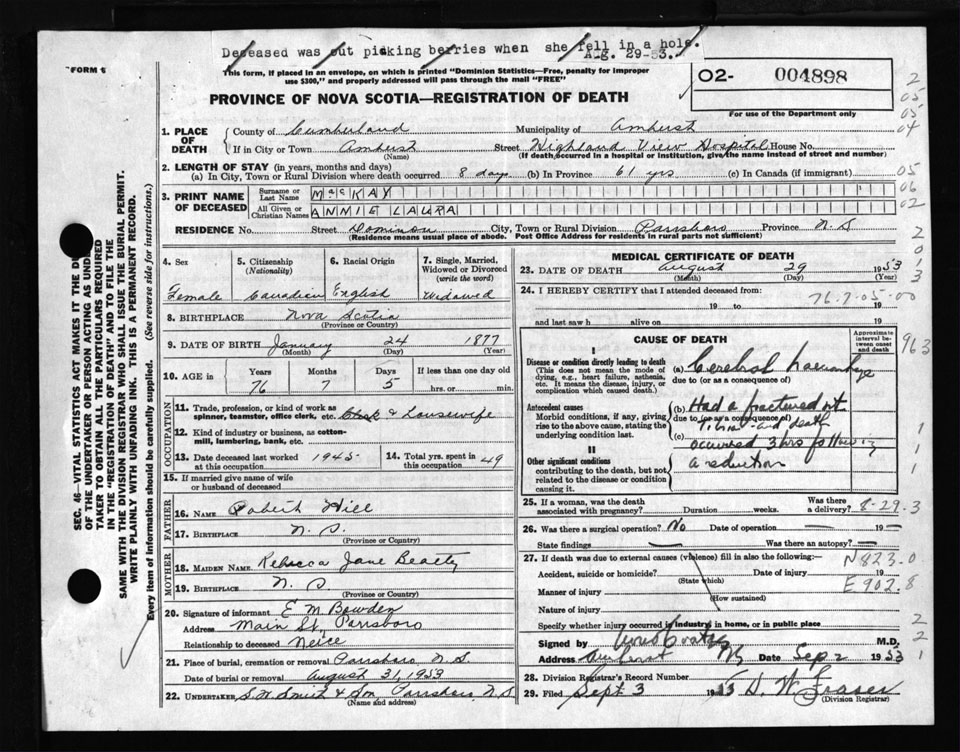 Deceased was out picking berries when she fell in a hole.
Aug. 29-53.
FORM 6
This form, if placed in an envelope, on which is printed "Dominion Statistics—Free, penalty for improper
use $300," and properly addressed will pass through the mail "FREE"
02- 004898
For use of the Department only
PROVINCE OF NOVA SCOTIA—REGISTRATION OF DEATH
2
05
05
04
1. PLACE OF DEATH
County of Cumberland Municipality of Amherst
If in City or Town Amherst Street Highland View Hospital House No.
(Name) (If death occurred in a hospital or institution, give the name instead of street and number)
2. LENGTH OF STAY (in years, months and days)
(a) In City, Town or Rural Division where death occurred 8 days (b) In Province 61 yrs (c) In Canada (if immigrant)
05
06
02
3. PRINT NAME OF DECEASED
Surname or Last Name MacKAY
All Given or Christian Names ANNIE LAURA
RESIDENCE No. Street Dominion City, Town or Rural Division Parrsboro Province N.S
(Residence means usual place of abode. Post Office Address for residents in rural parts not sufficient)
2
0
1
3
4. Sex Female
5. Citizenship (Nationality) Canadian
6. Racial Origin English
7. Single, Married, Widowed or Divorced (write the word) Widowed
8. BIRTHPLACE Nova Scotia
(Province or Country)
9. DATE OF BIRTH January 24 1877
(Month) (Day) (Year)
10. AGE in Years 76 Months 7 Days 5 If less than one day old
hrs. or min.
OCCUPATION
11. Trade, profession, or kind of work as
spinner, teamster, office clerk, etc. Clerk & Housewife
12. Kind of industry or business, as cotton-
mill, lumbering, bank, etc.
13. Date deceased last worked at this occupation 1945
14. Total yrs. spent in this occupation 49
15. If married give name of wife
or husband of deceased
FATHER
16. NAME Robert Hill
17. BIRTHPLACE N. S.
(Province or Country)
MOTHER
18. MAIDEN NAME Rebecca Jane Beatty
19. BIRTHPLACE N. S
(Province or Country)
20. Signature of informant E M Bowden
Address Main St, Parrsboro
Relationship to deceased Neice
21. Place of burial, cremation or removal Parrsboro, N.S.
Date of burial or removal August 31, 1953
22. UNDERTAKER S. W. Smith & Son Parrsboro N.S
(Name and address)
MEDICAL CERTIFICATE OF DEATH
23. DATE OF DEATH August 29 1953
(Month) (Day) (Year)
24. I HEREBY CERTIFY that I attended deceased from:
19 to 19
76.7.05-00
and last saw h alive on 19
CAUSE OF DEATH
Approximate interval between onset and death
963
I
Disease or condition directly leading to death
(This does not mean the mode of dying, e.g., heart failure, asthenia, etc. It means the disease, injury, or complication which caused death.)
(a) Cerebral haemorrhage
due to (or as a consequence of)
Antecedent causes
Morbid conditions, if any, giving rise to the above cause, stating the underlying condition last.
(b) Had a fractured rt
due to (or as a consequence of)
Tibia - and death
(c) occurred 3 hrs following
a reduction
II
Other significant conditions
contributing to the death, but not related to the disease or condition causing it.
1
1
1
25. If a woman, was the death
associated with pregnancy? Duration weeks. Was there a delivery?
8-29.3
26. Was there a surgical operation? No Date of operation 19
State findings Was there an autopsy?
27. If death was due to external causes (violence) fill in also the following:
N823.0
Accident, suicide or homicide? Date of injury 19
(State which)
E902.8
Manner of injury
(How sustained)
Nature of injury
Specify whether injury occurred in industry, in home, or in public place
2
2
1
Signed by M.D.
Address Amherst NS Date Sep 2 1953
28. Division Registrar's Record Number
29. Filed Sept. 3 1953 D. W. Fraser
(Division Registrar)
SEC. 46—VITAL STATISTICS ACT MAKES IT THE
OF THE UNDERTAKER OR PERSON ACTING AS
TAKER TO OBTAIN ALL THE PARTICULARS REQUIRED
IN THE "REGISTRATION OF DEATH" AND TO FILE THE
SAME WITH THE DIVISION REGISTRAR WHO SHALL ISSUE THE BURIAL PERMIT.
WRITE PLAINLY WITH UNFADING INK. THIS IS A PERMANENT RECORD.
Every item of information should be carefully supplied. (See reverse side for instructions.)